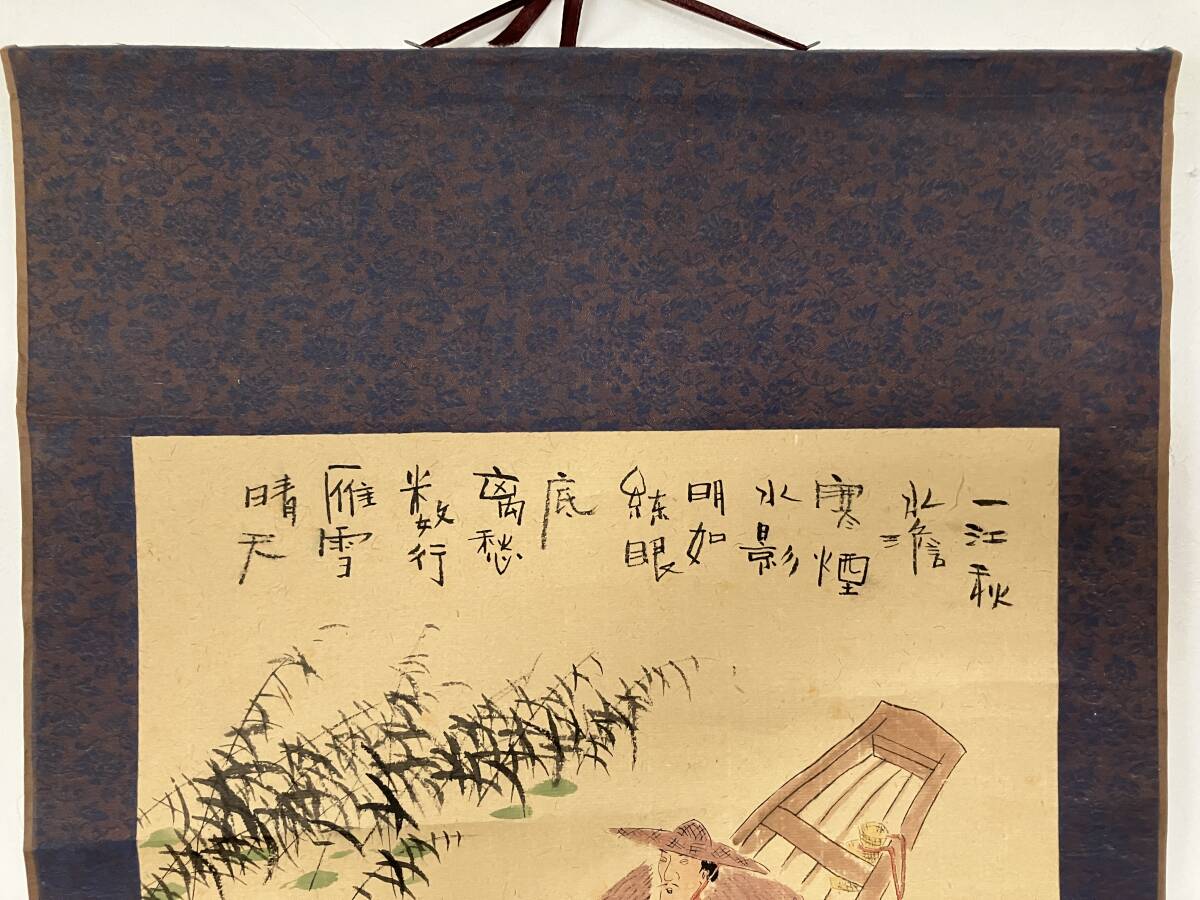 一江秋
水澹
寒煙
水影
明如
練眼
底
离愁
数行
雁雪
晴天